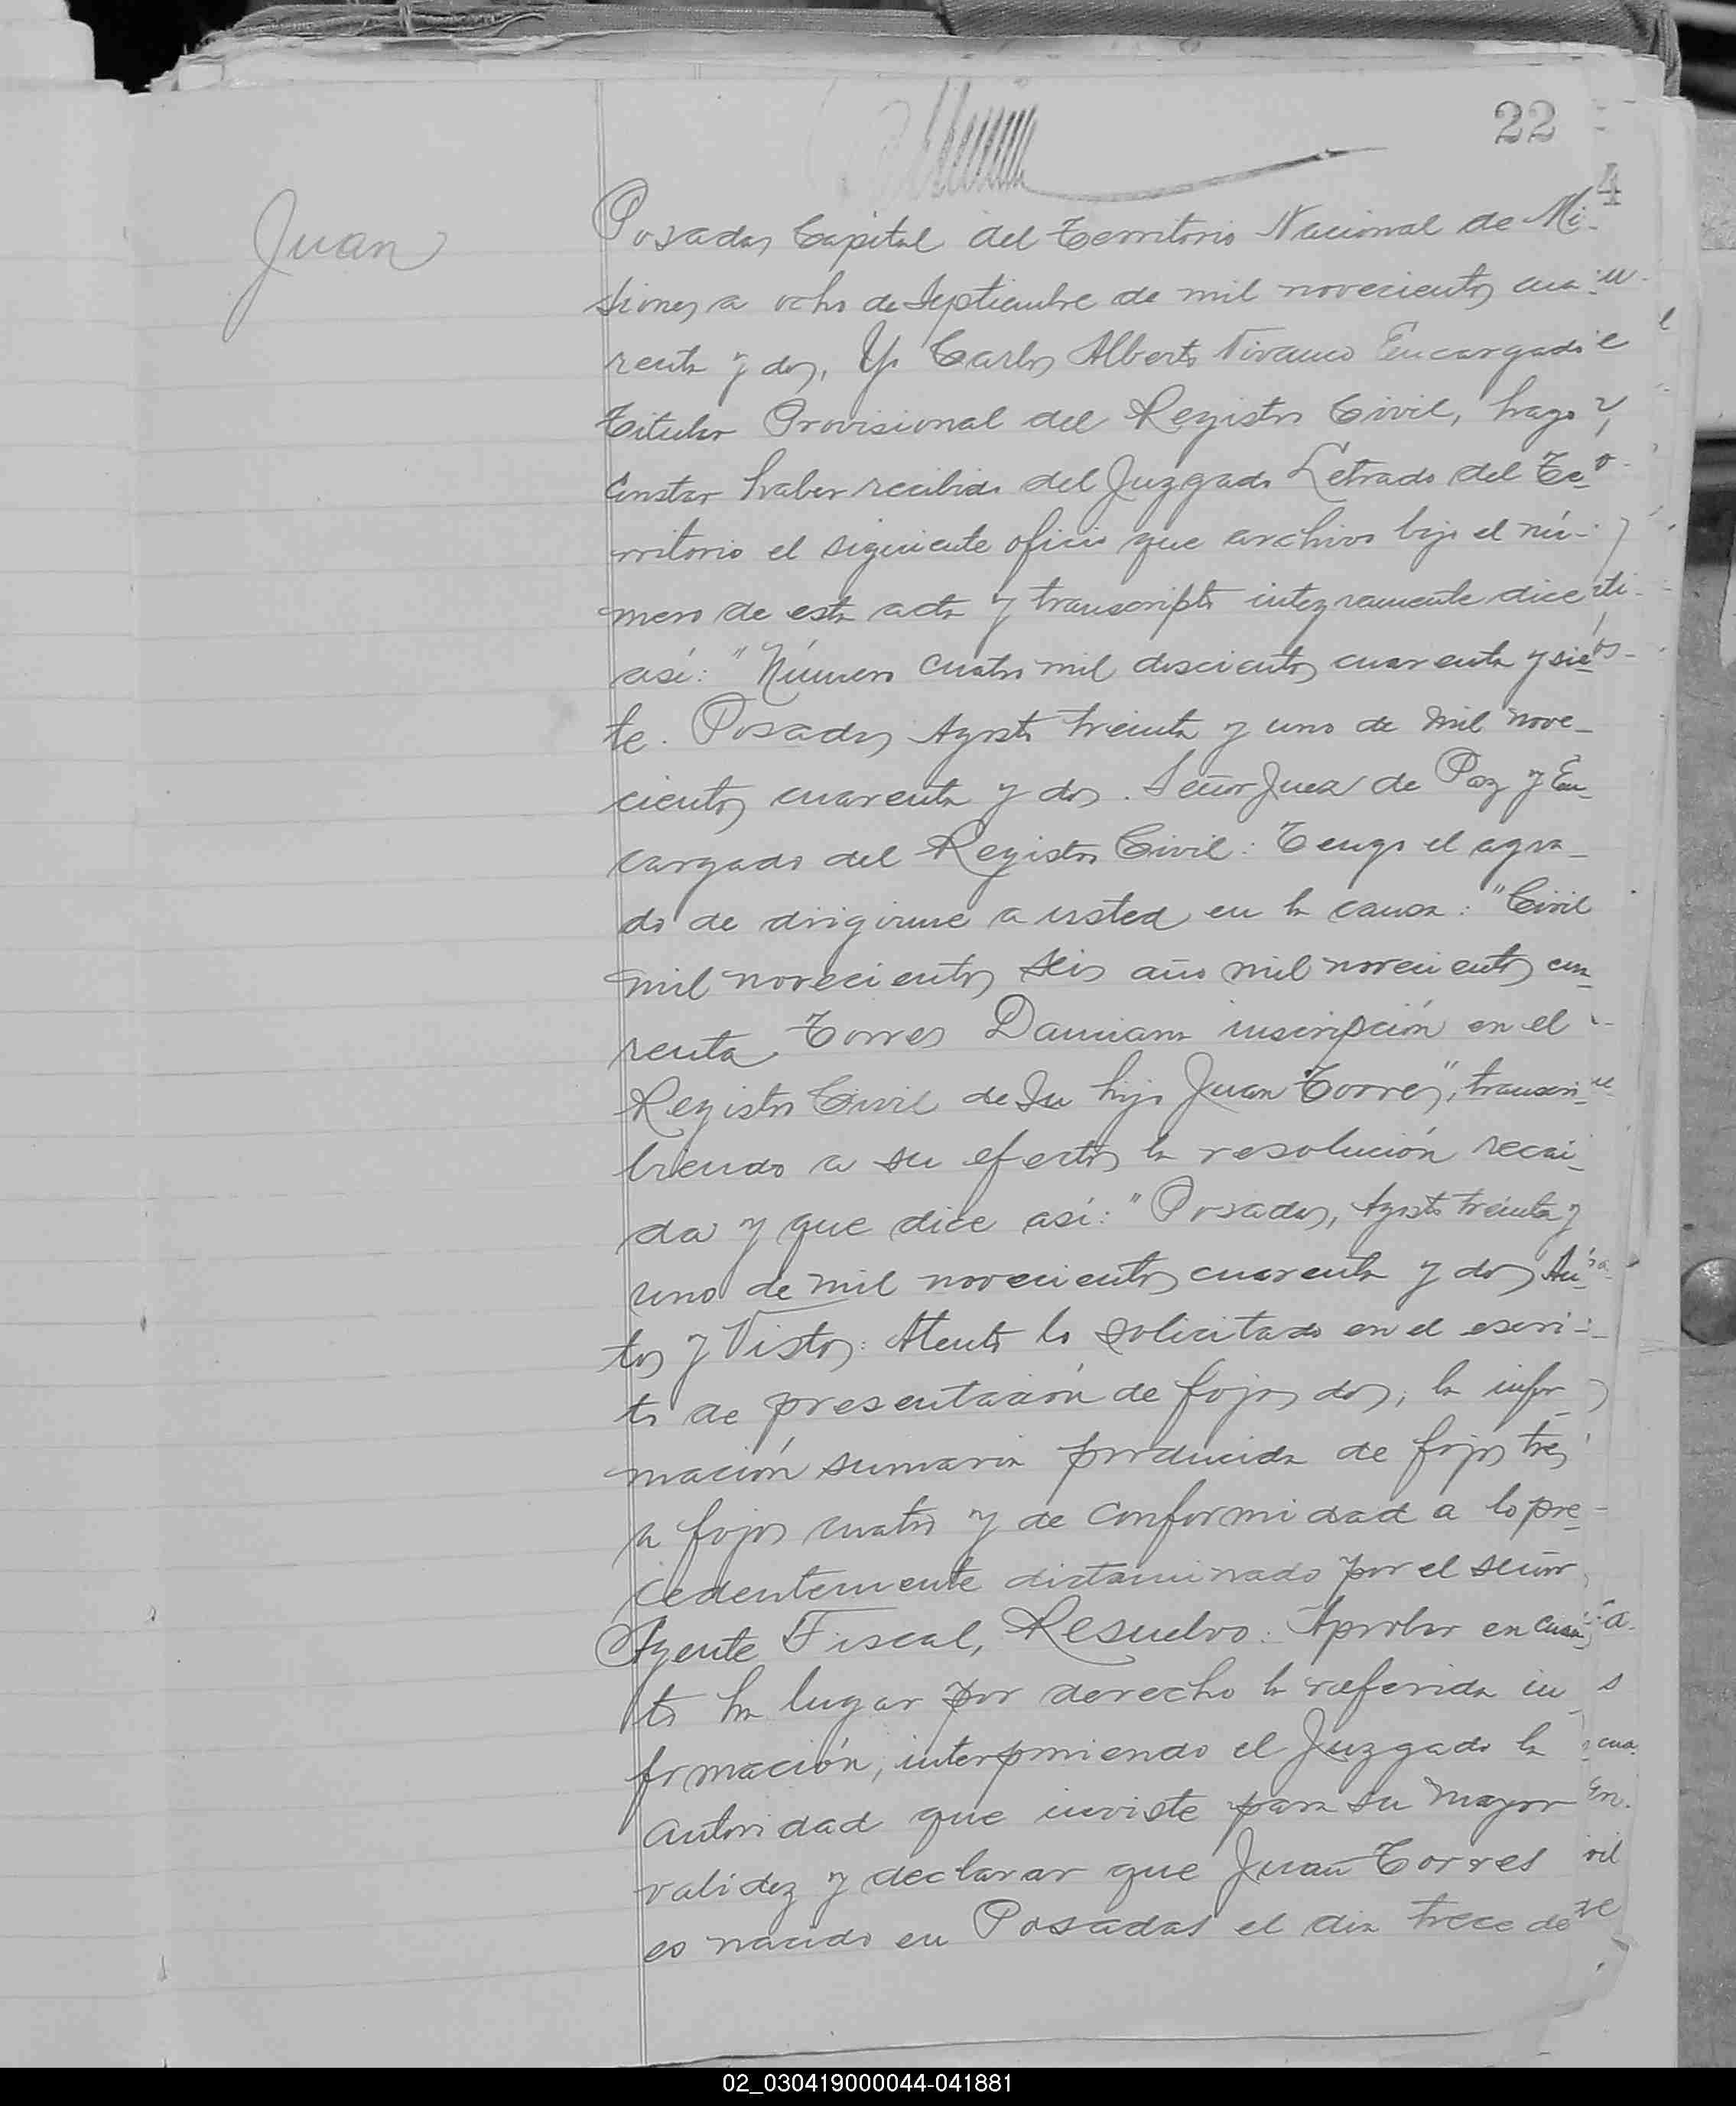 22
4
Juan
Posadas Capital del Territorio Nacional de Mi-
siones a ocho de Septiembre de mil novecientos cua-
renta y dos, Yo Carlos Alberto Vivanco Encargado
Titular Provisional del Registro Civil, hago
constar haber recibido del Juzgado Letrado del Te-
rritorio el siguiente oficio que archivo bajo el nú-
mero de esta acta y transcripto integramente dice
así: "Número cuatro mil doscientos cuarenta y sie-
te. Posadas Agosto treinta y uno de mil nove-
cientos cuarenta y dos. Señor Juez de Paz y En-
cargado del Registro Civil: Tengo el agra-
do de dirigirme a usted en la causa: "Civil
mil novecientos seis año mil novecientos cua-
renta Torres Damiana inscripción en el
Registro Civil de su hijo Juan Torres", transcri-
biendo a su efectos la resolución recai-
da y que dice así: "Posadas, Agosto treinta y
uno de mil novecientos cuarenta y dos Au-
tos y Vistos: Atento lo solicitado en el escri-
to de presentación de fojas dos, la infor-
mación sumaria producida de fojas tres
a fojas cuatro y de conformidad a lo pre-
cedentemente dictaminado por el señor
Agente Fiscal, Resuelvo: Aprobar en cuan-
to ha lugar por derecho la referida in-
formación, interponiendo el Juzgado la
autoridad que inviste para su mayor
validez y declarar que Juan Torres
es nacido en Posadas el dia trece de
02_030419000044-041881